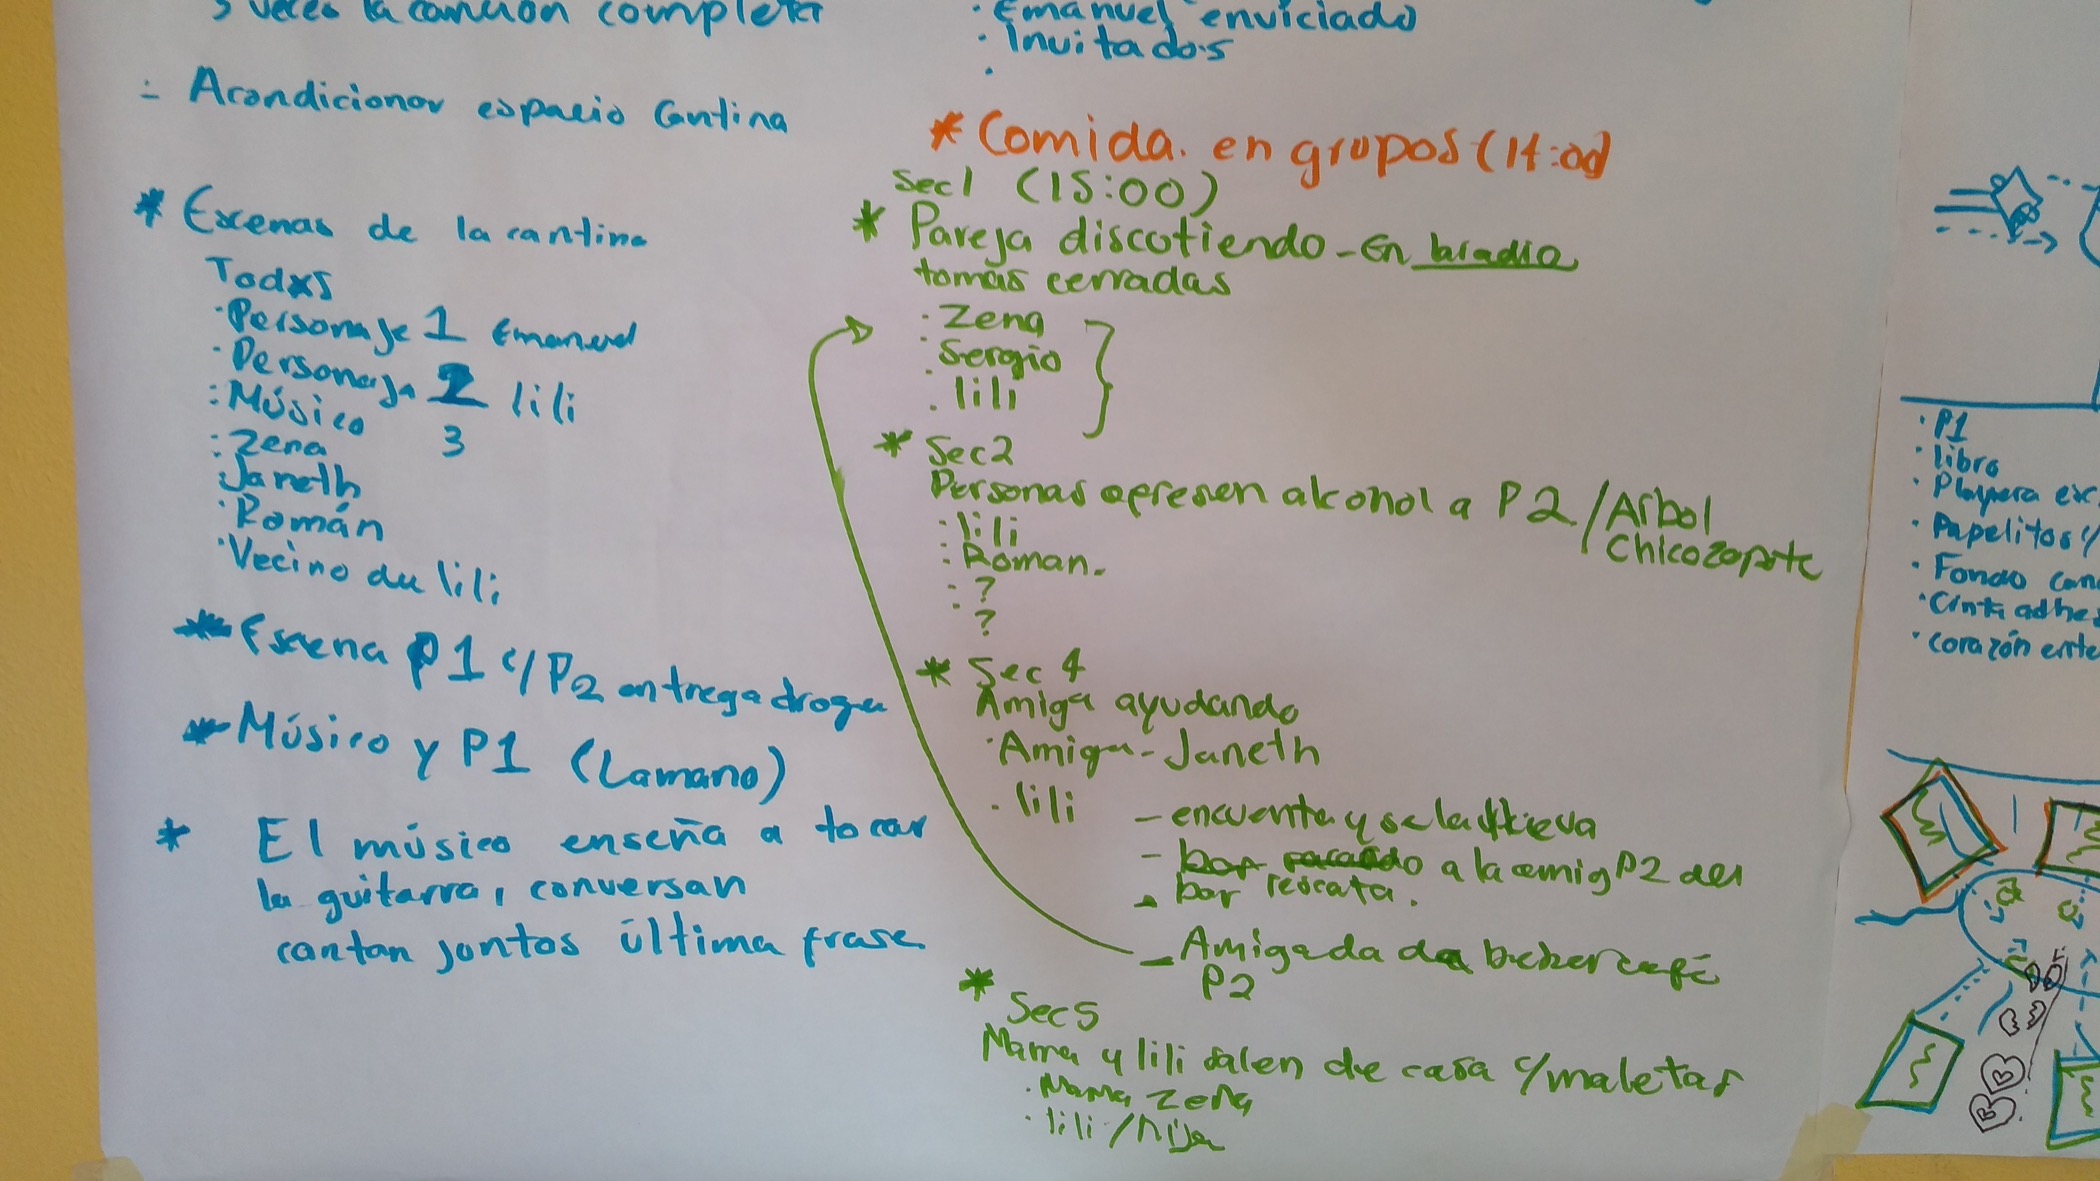 3 veces la canción completa
- Acondicionar espacio Cantina
* Escenas de la cantina
Todxs
· Personaje 1 Emanuel
· Personaje 2 lili
: Músico 3
: Zena
· Janeth
· Román
· Vecino de lili
* Escena P1 c/ P2 entrega droga
* Músico y P1 (La mano)
* El músico enseña a tocar
la guitarra, conversan
cantan juntos última frase
· Emanuel enviciado
· Invitados
* Comida. en grupos (14:00)
Sec1 (15:00)
* Pareja discutiendo - En la radio
tomas cerradas
· Zena
· Sergio
· lili
* Sec2
Personas ofrecen alcohol a P2 / Arbol
Chicozapote
: lili
: Roman.
: ?
?
* Sec 4
Amiga ayudando
· Amiga - Janeth
· lili
- encuentra y se la lleva
- a la amig P2 del
- bar rescata.
- Amiga da de beber café
P2
* Sec5
Mama y lili salen de casa c/maletas
· Mama Zena
· lili / hija
· P1
· libro
· Playera
· Papelitos
· Fondo
· Cinta
· corazón